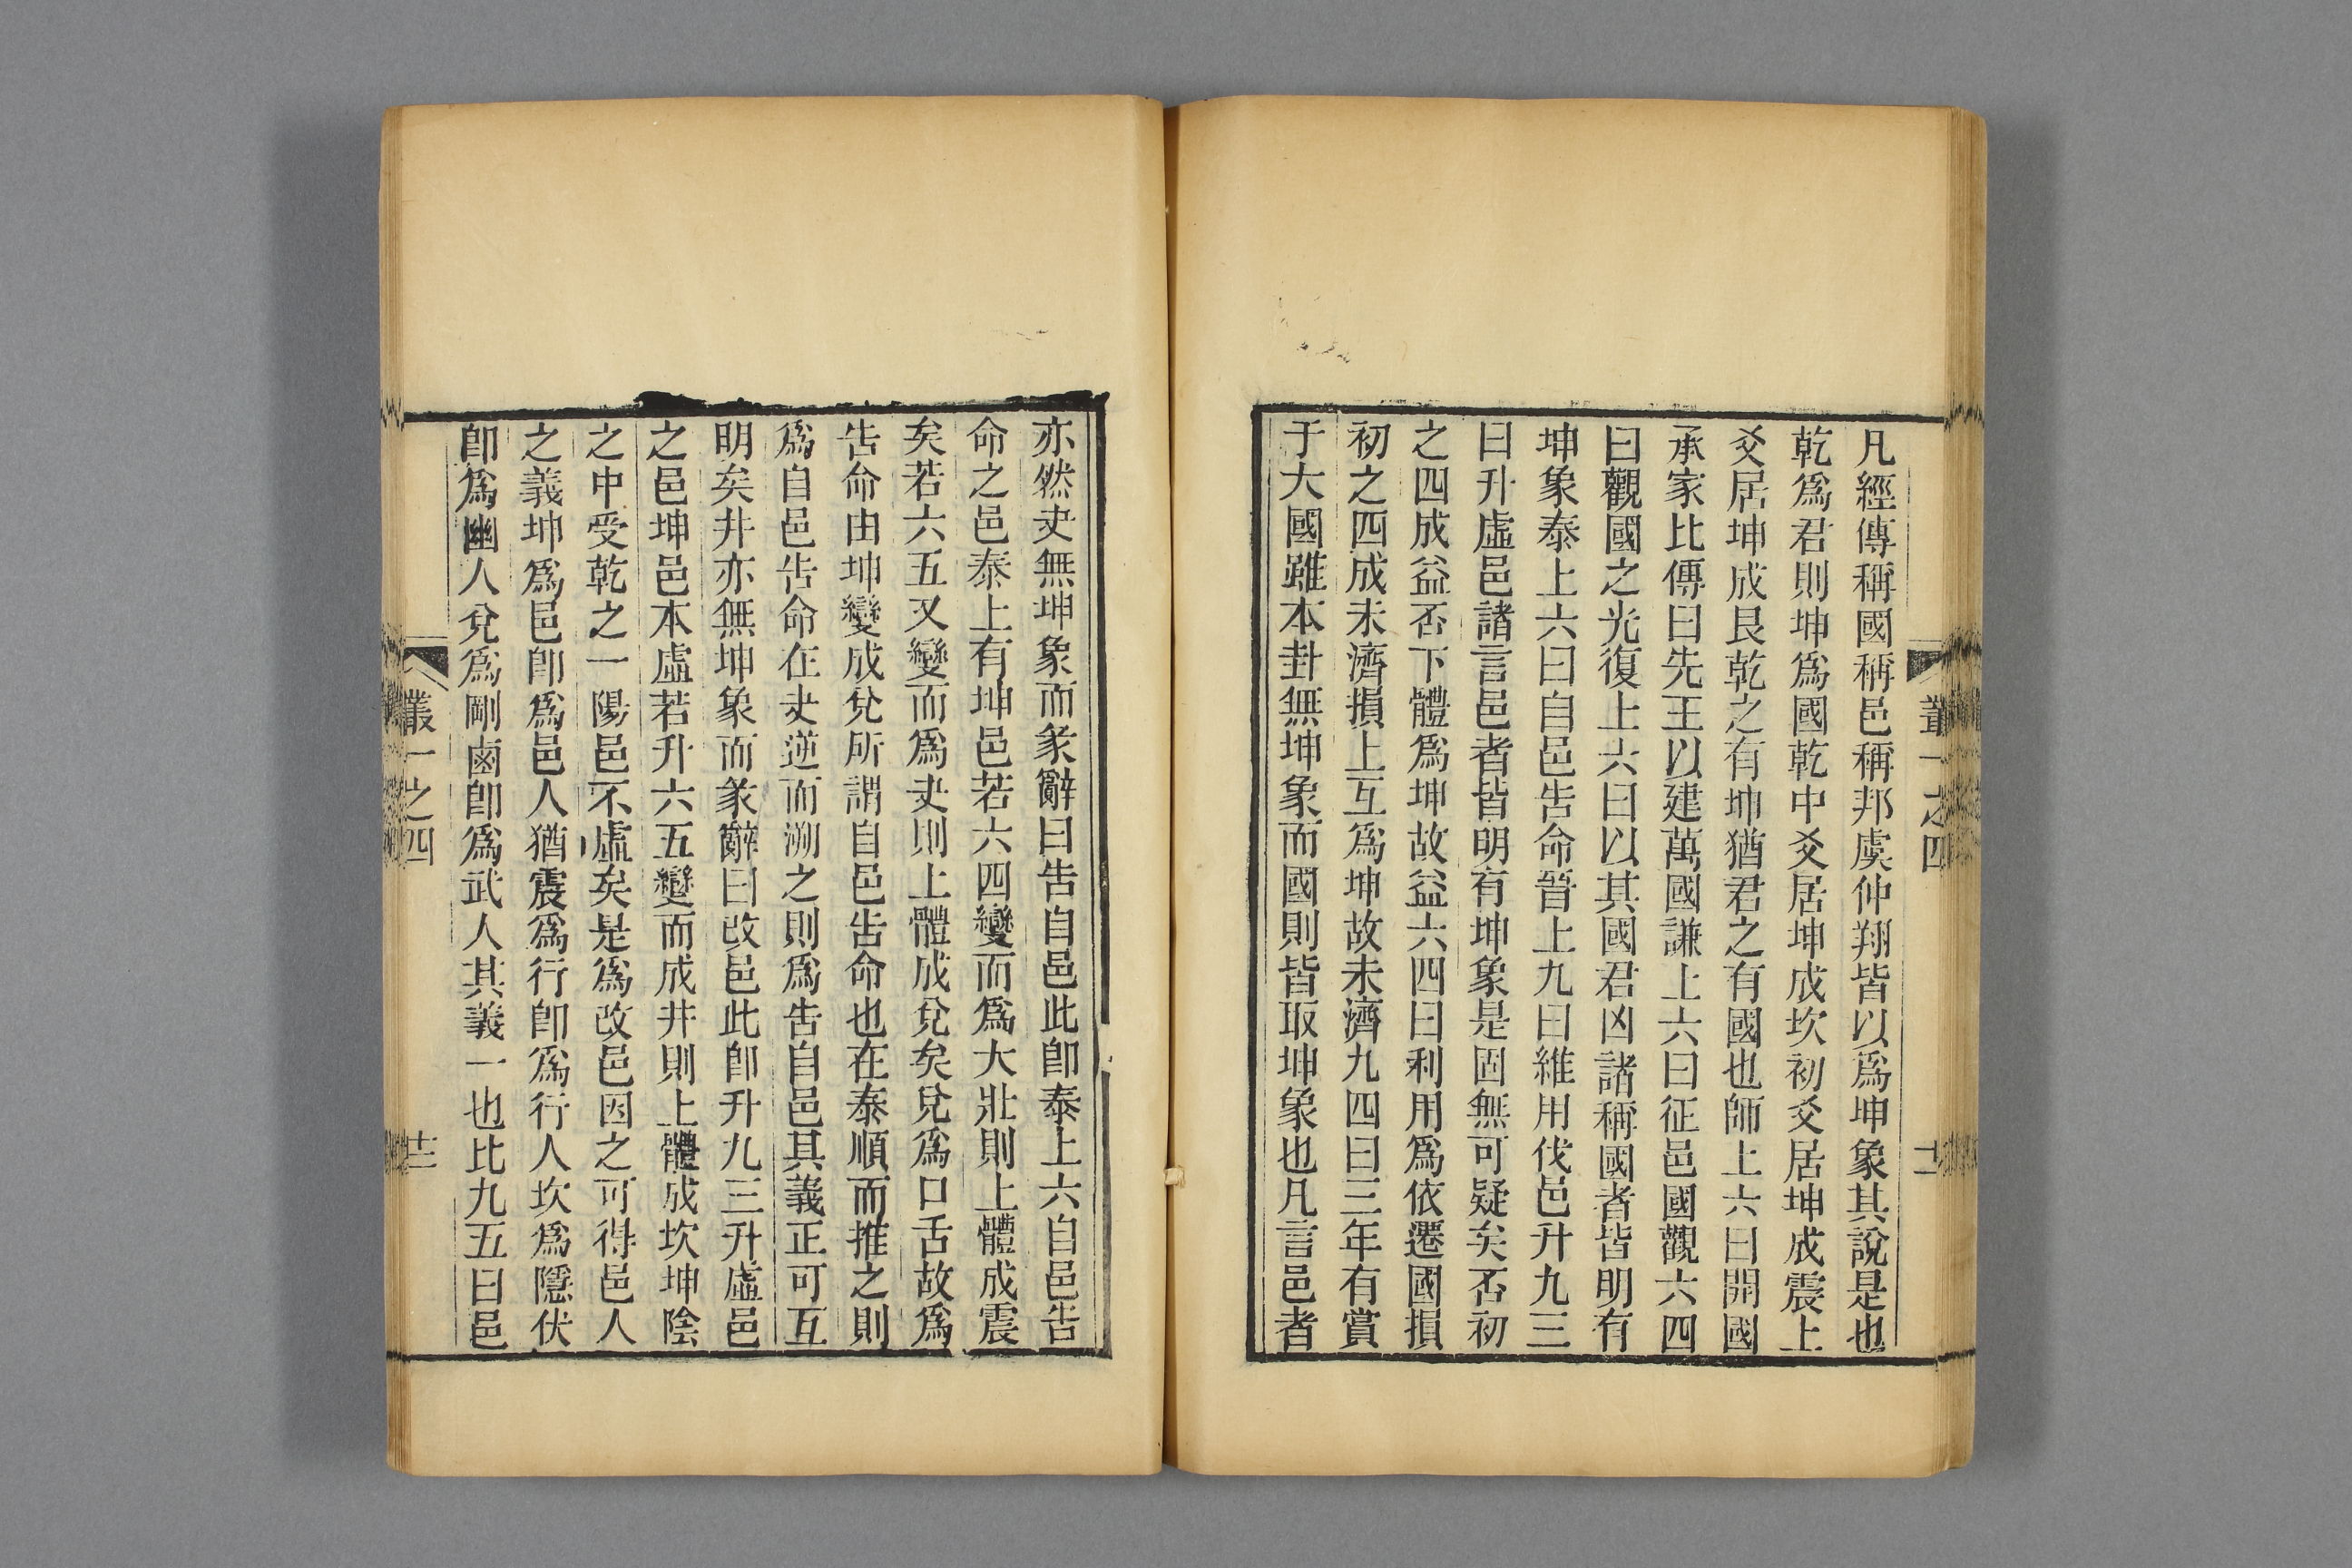 叢一之四
十二
凡經傳稱國稱邑稱邦虞仲翔皆以爲坤象其說是也
乾爲君則坤爲國乾中爻居坤成坎初爻居坤成震上
爻居坤成艮乾之有坤猶君之有國也師上六曰開國
承家比傳曰先王以建萬國謙上六曰征邑國觀六四
曰觀國之光復上六曰以其國君凶諸稱國者皆明有
坤象泰上六曰自邑告命晉上九曰維用伐邑升九三
曰升虛邑諸言邑者皆明有坤象是固無可疑矣否初
之四成益否下體爲坤故益六四曰利用爲依遷國損
初之四成未濟損上互爲坤故未濟九四曰三年有賞
于大國雖本卦無坤象而國則皆取坤象也凡言邑者
亦然夬無坤象而彖辭曰告自邑此卽泰上六自邑告
命之邑泰上有坤邑若六四變而爲大壯則上體成震
矣若六五又變而爲夬則上體成兌矣兌爲口舌故爲
告命由坤變成兌所謂自邑告命也在泰順而推之則
爲自邑告命在夬逆而溯之則爲告自邑其義正可互
明矣井亦無坤象而彖辭曰改邑此卽升九三升虛邑
之邑坤邑本虛若升六五變而成井則上體成坎坤陰
之中受乾之一陽邑不虛矣是爲改邑因之可得邑人
之義坤爲邑卽爲邑人猶震爲行卽爲行人坎爲隱伏
卽爲幽人兌爲剛鹵卽爲武人其義一也比九五曰邑
叢一之四
十三